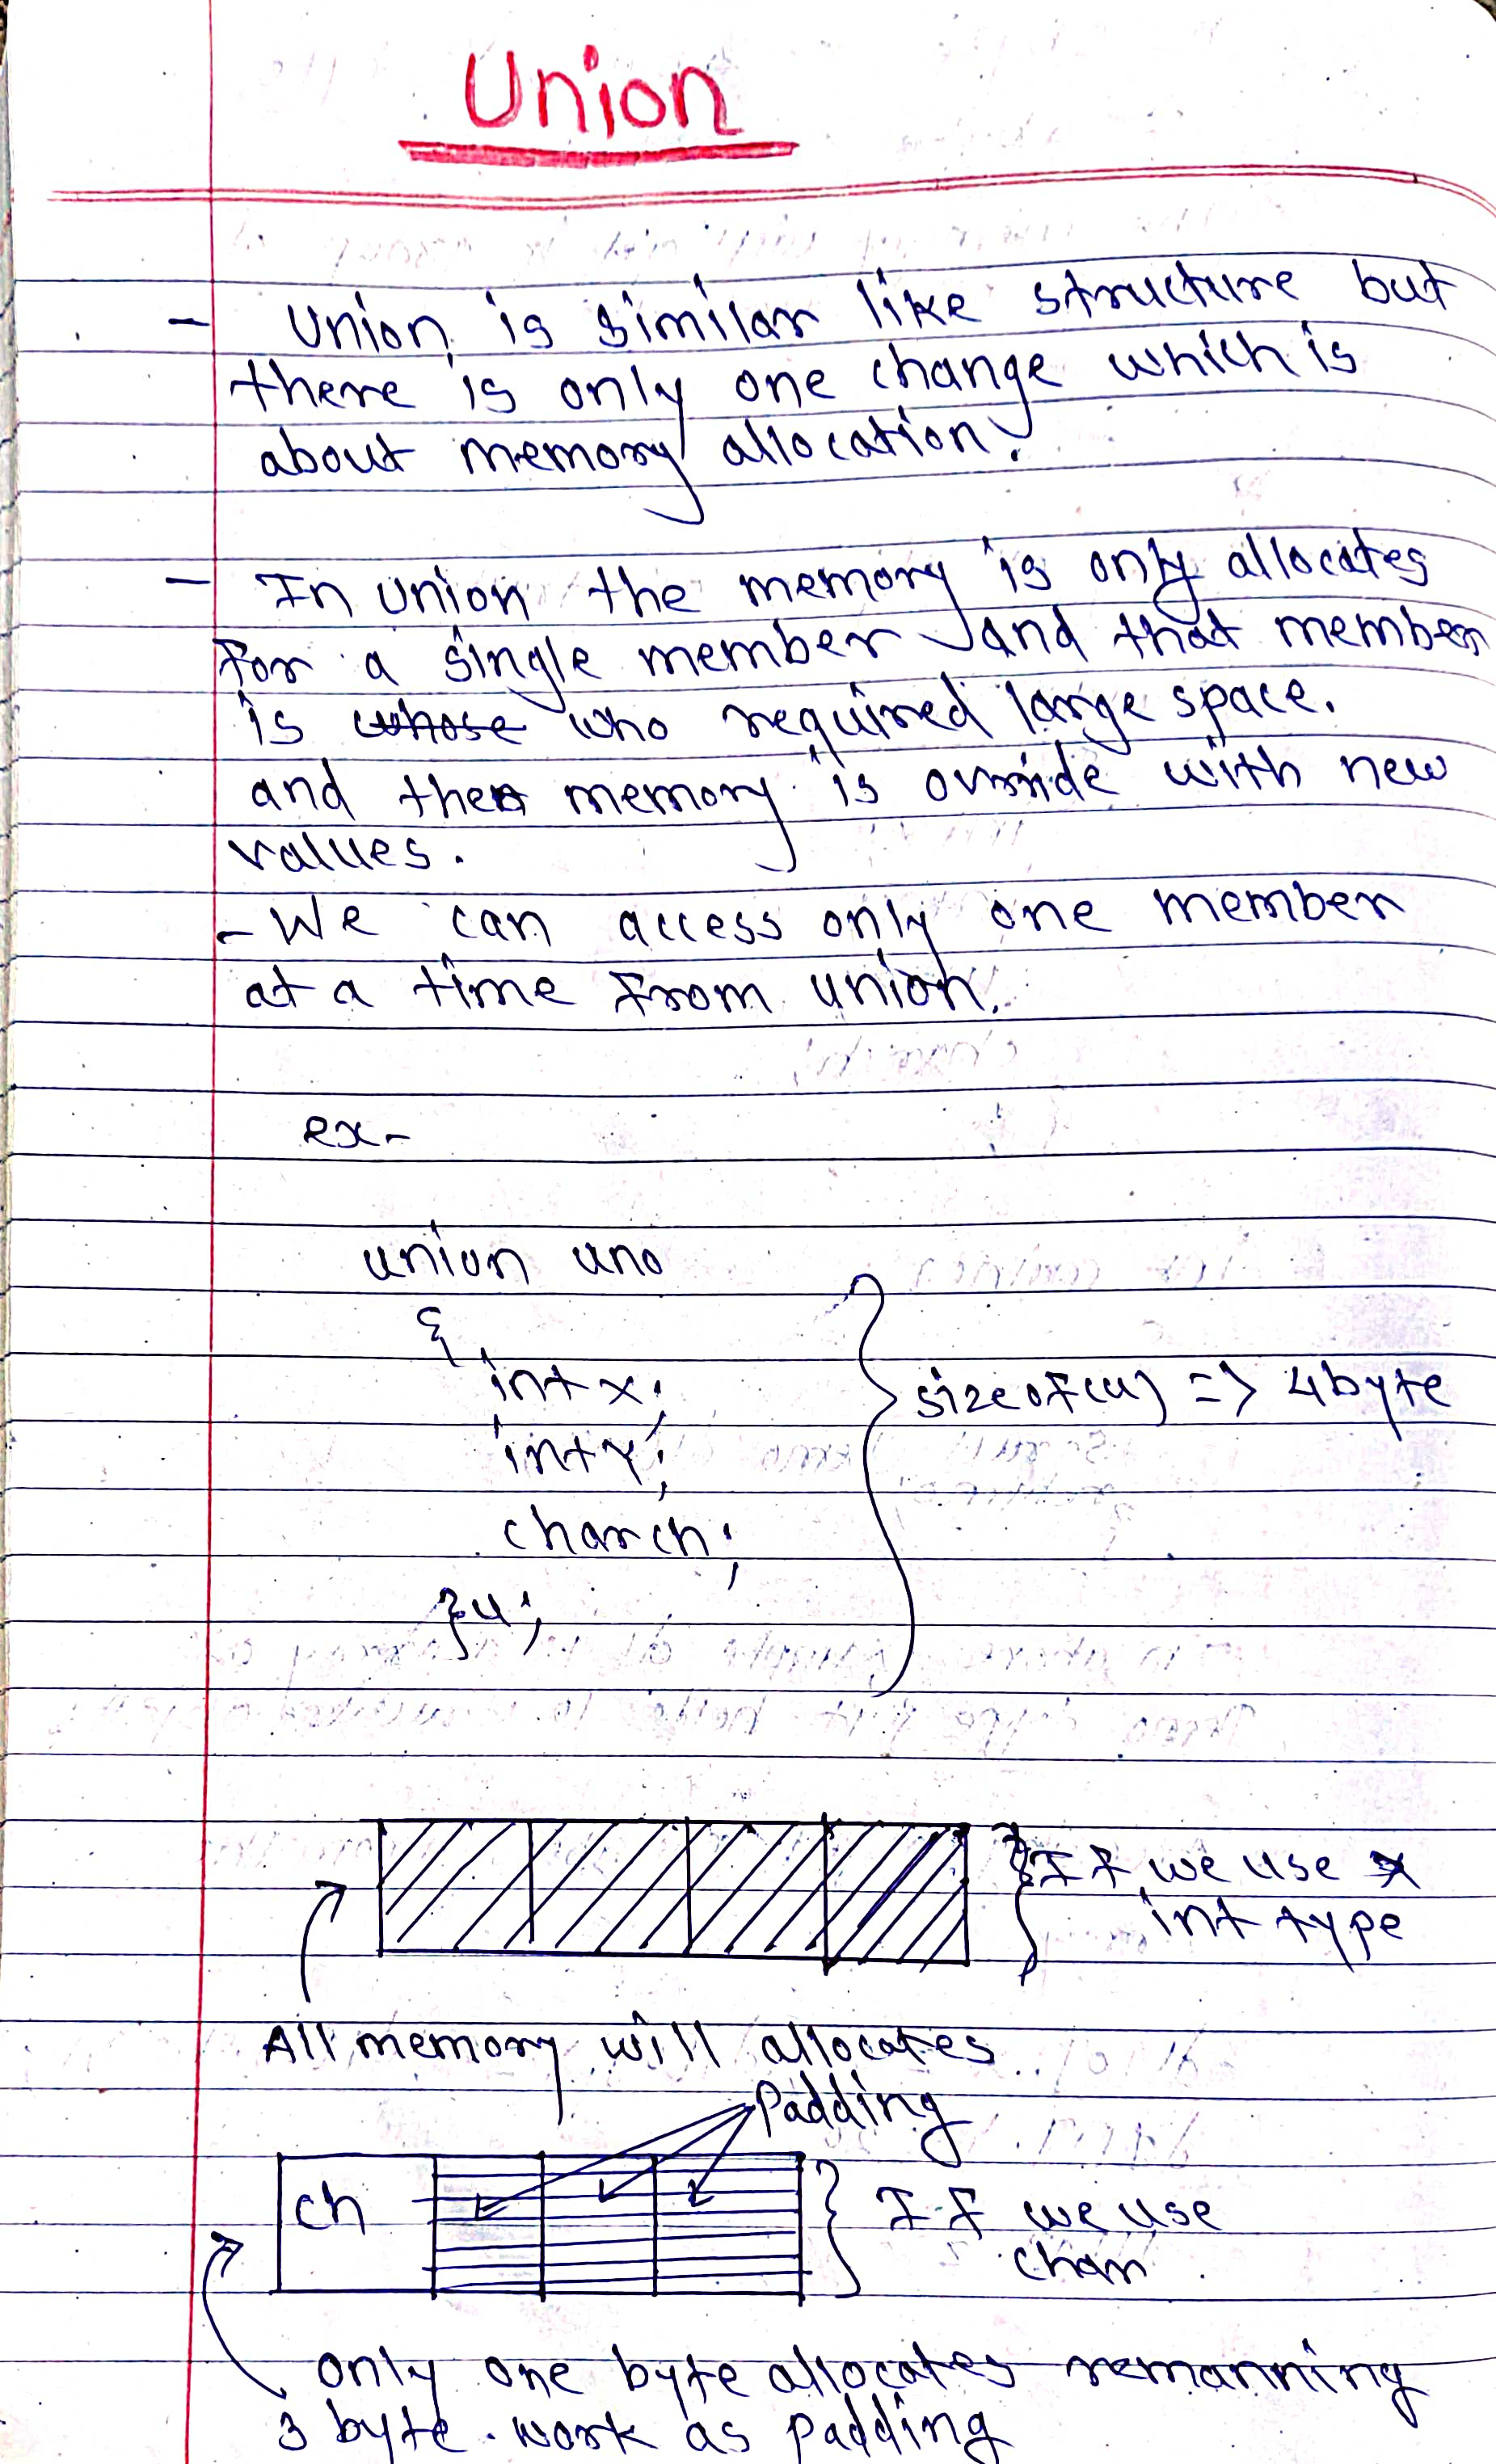 Union
- Union is similar like structure but
there is only one change which is
about memory allocation.
- In union the memory is only allocates
for a single member and that member
is whose who required large space.
and then memory is override with new
values.
- We can access only one member
at a time from union.
ex-
union uno
{
int x;
int y;
char ch;
}u;
sizeof(u) => 4 byte
If we use
int type
All memory will allocates
Padding
ch
If we use
char
only one byte allocates remanning
3 byte work as padding